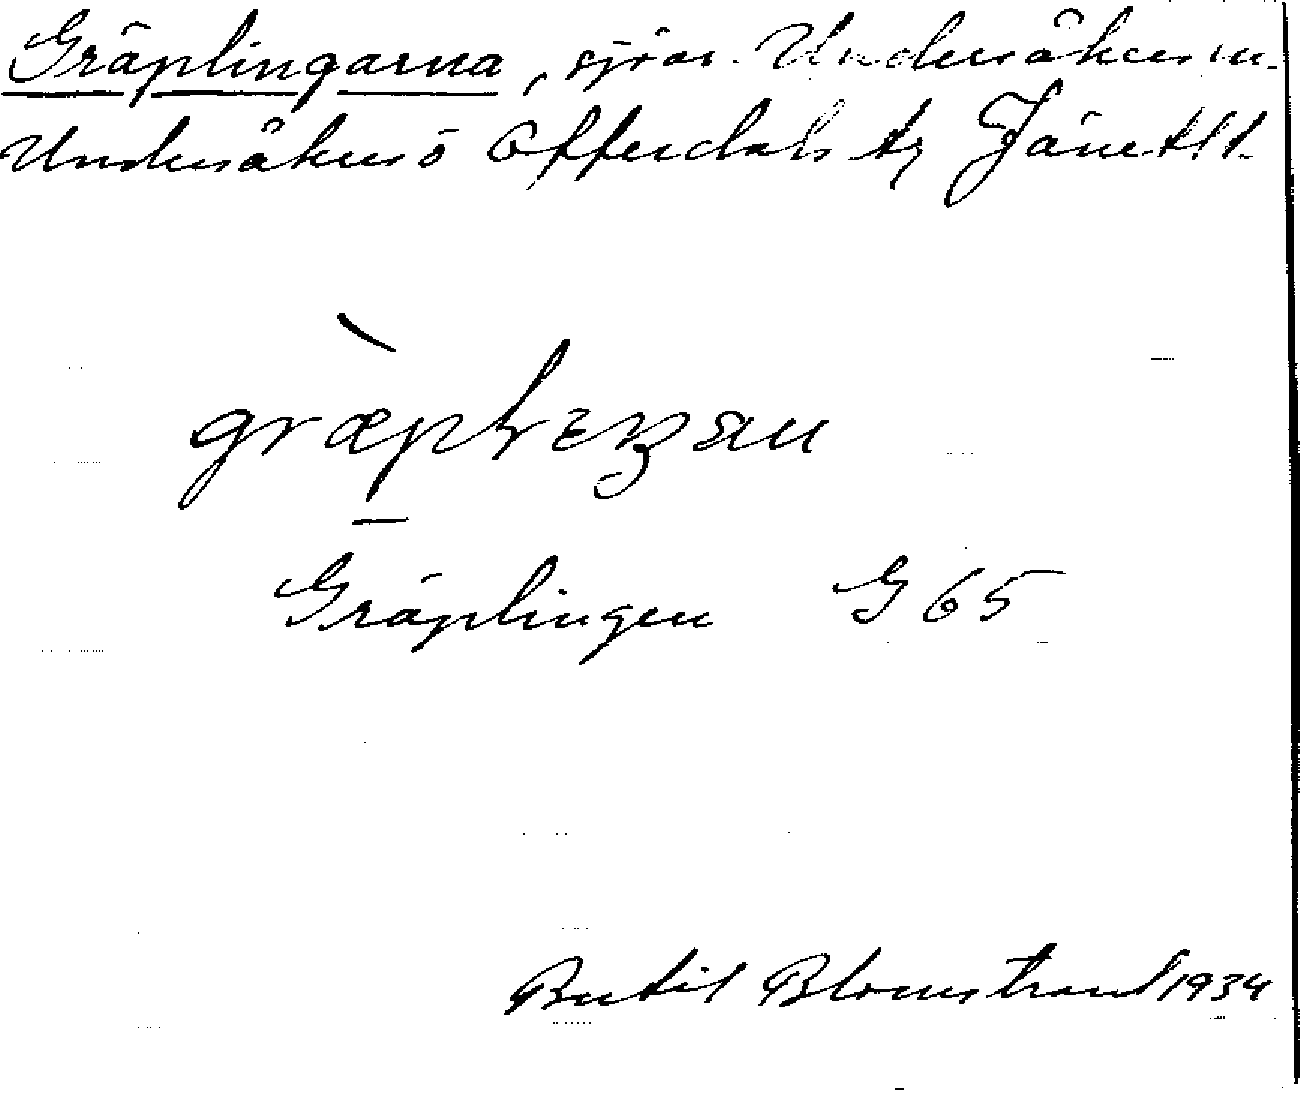 Gräplingarna, sjöar. Undersåkers sn.
Undersåkers o Offerdals tg Jämtl l.
Gräplingen G 65
Bertil Blomstrand 1934